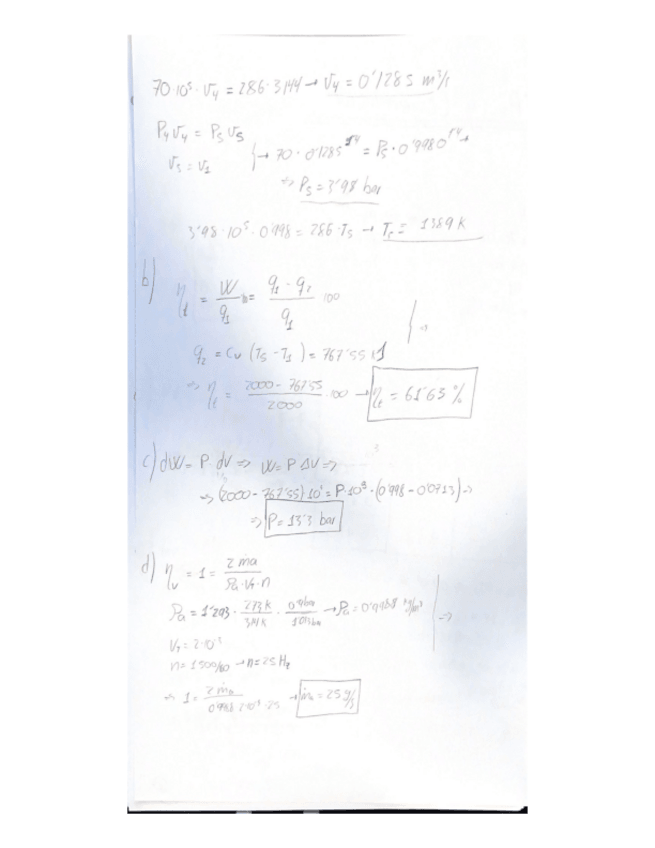 70·10⁵·V₄ = 286·3144 → V₄ = 0'1285 m³/s
P₄V₄ = P₅V₅
V₅ = V₁
→ 70 · 0'1285^1'4 = P₅ · 0'9980^1'4 →
⇒ P₅ = 3'98 bar
3'98·10⁵·0'998 = 286·T₅ → T₅ = 1389 K
b)
ηt = W/q₁ = (q₁ - q₂)/q₁ · 100
⇒
q₂ = Cv (T₅ - T₁) = 767'55 kJ
⇒ ηt = (2000 - 767'55)/2000 · 100 → ηt = 61'63 %
c) dW = P·dV ⇒ W = P·ΔV ⇒
⇒ (2000 - 767'55)·10³ = P·10⁵·(0'998 - 0'0713) ⇒
⇒ P = 13'3 bar
d) ηv = 1 = 2ṁa/(ρa·VT·n)
ρa = 1'293 · 273K/314K · 0'9bar/1'013bar → ρa = 0'9988 kg/m³
⇒
VT = 2·10⁻³
n = 1500/60 → n = 25 Hz
⇒ 1 = 2ṁa/(0'998·2·10⁻³·25) → ṁa = 25 g/s